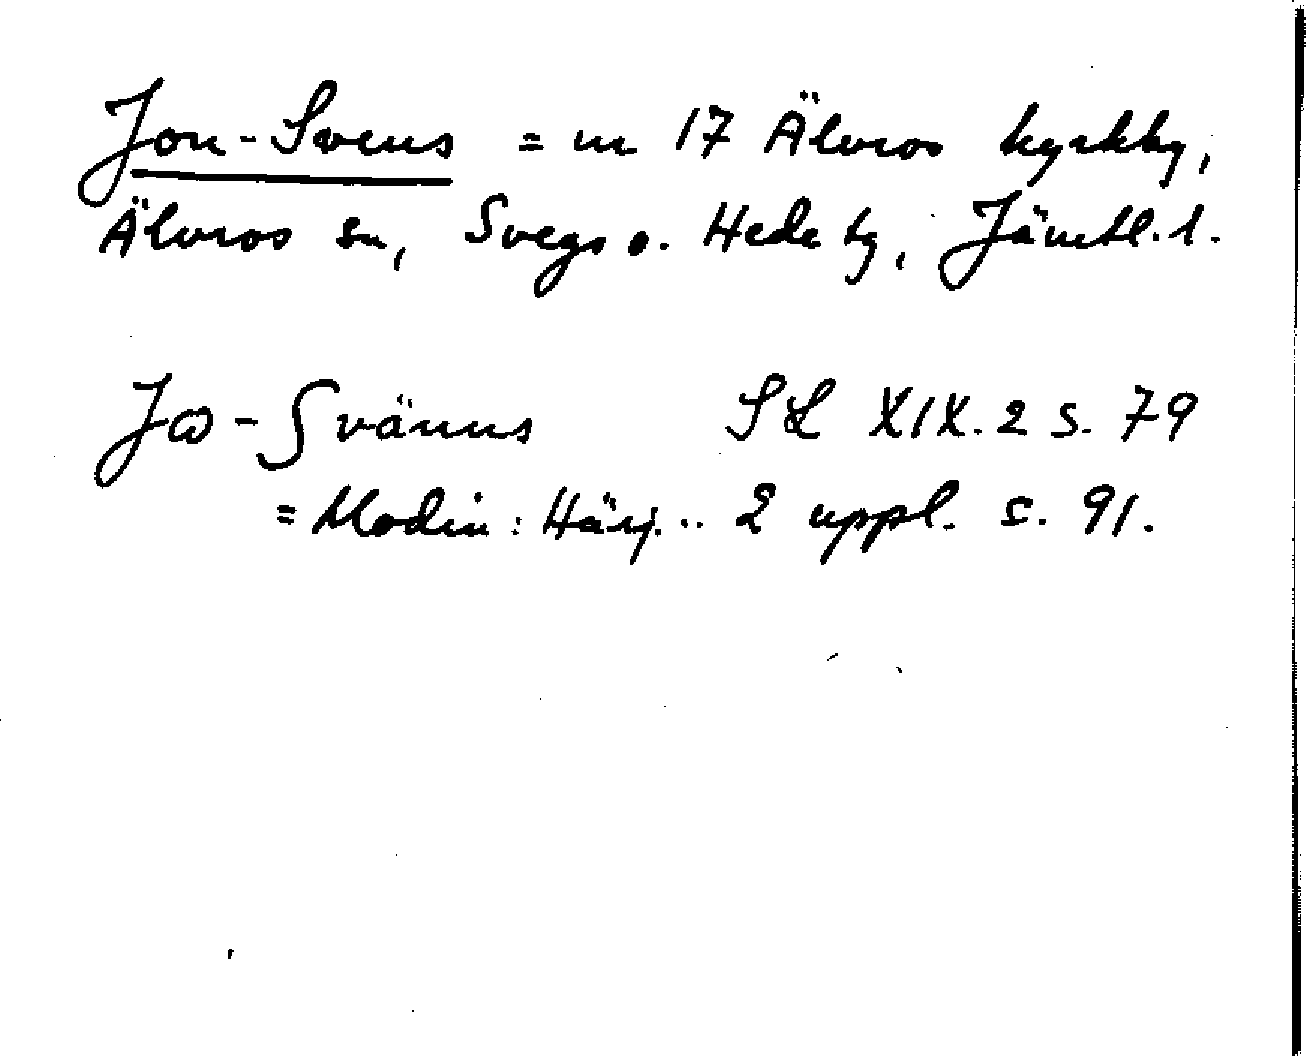 Jon-Svens = nr 17 Älvros kyrkby,
Älvros sn, Svegs o. Hede tg, Jämtl. l.
Jɷ-Svänns SL XIX. 2 s. 79
= Modin: Härj. .. 2 uppl. s. 91.